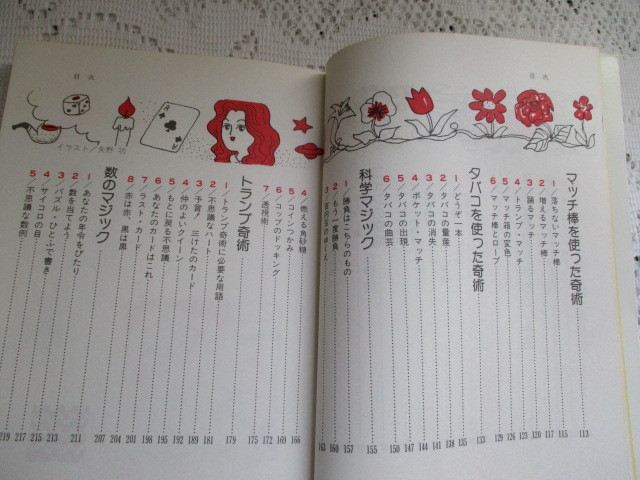 目次
マッチ棒を使った奇術 113
1/落ちないマッチ棒 115
2/増えるマッチ棒 117
3/踊るマッチ 120
4/トランプ・マッチ 123
5/マッチ箱の変色 126
6/マッチ棒とロープ 129
タバコを使った奇術 133
1/どうぞ一本 135
2/タバコの量産 138
3/タバコの消失 141
4/ポケット・マッチ 144
5/タバコの出現 147
6/タバコの曲芸 150
科学マジック 155
1/勝負はこちらのもの 157
2/もう一度勝負 160
3/ 163
目次
イラスト/矢野功
4/燃える角砂糖 166
5/コインつかみ 169
6/コップのドッキング 172
7/透視術 175
トランプ奇術 179
1/トランプ奇術に必要な用語 181
2/不思議なハート
3/予言!三けたのカード
4/仲のよいクイーン
5/もとに戻る不思議
6/あなたのカードはこれ
7/ラスト・カード
8/赤は赤、黒は黒
数のマジック 207
1/あなたの年令をぴたり 211
2/数を当てよう 213
3/パズル・ひとふで書き 215
4/サイコロの目 217
5/不思議な数例 219